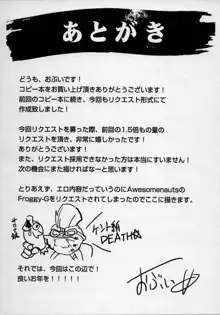 あとがき
どうも、おぶいです！
コピー本をお買い上げ頂きありがとうございます！
前回のコピー本に続き、今回もリクエスト形式にて
作成致しました！
今回リクエストを募った際、前回の1.5倍もの量の
リクエストを頂き、非常に嬉しかったです！
ありがとうございます！
また、リクエスト採用できなかった方は本当にすいません！
次の機会にまた描ければなーと思います！
とりあえず、エロ内容だっていうのにAwesomenautsの
Froggy-Gをリクエストされてしまったのでここに描きます。
DEATH
それでは、今回はこの辺で！
良いお年を！！！！！
おぶい